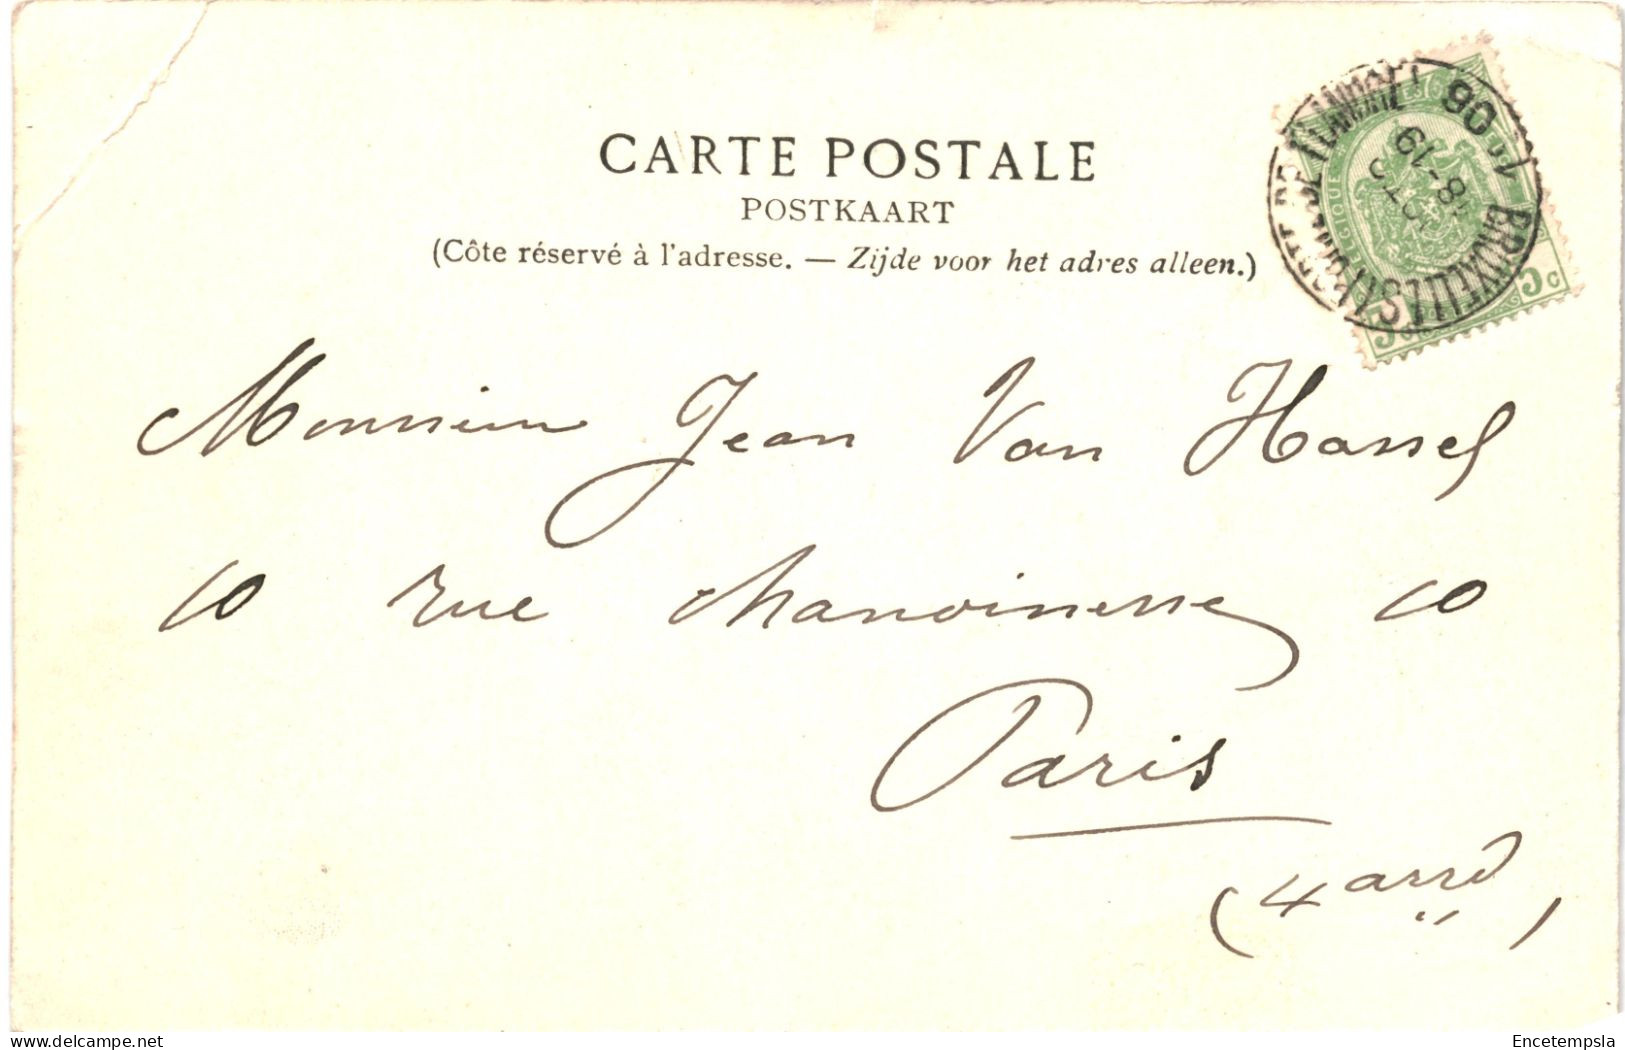 CARTE POSTALE
POSTKAART
(Côte réservé à l'adresse. — Zijde voor het adres alleen.)
BRUXELLES
8-19
OCT
06
5 c
Monsieur Jean Van Hassel
10 rue Chanoinesse 10
Paris
(4 arrd)
delcampe.net
Encetempsla